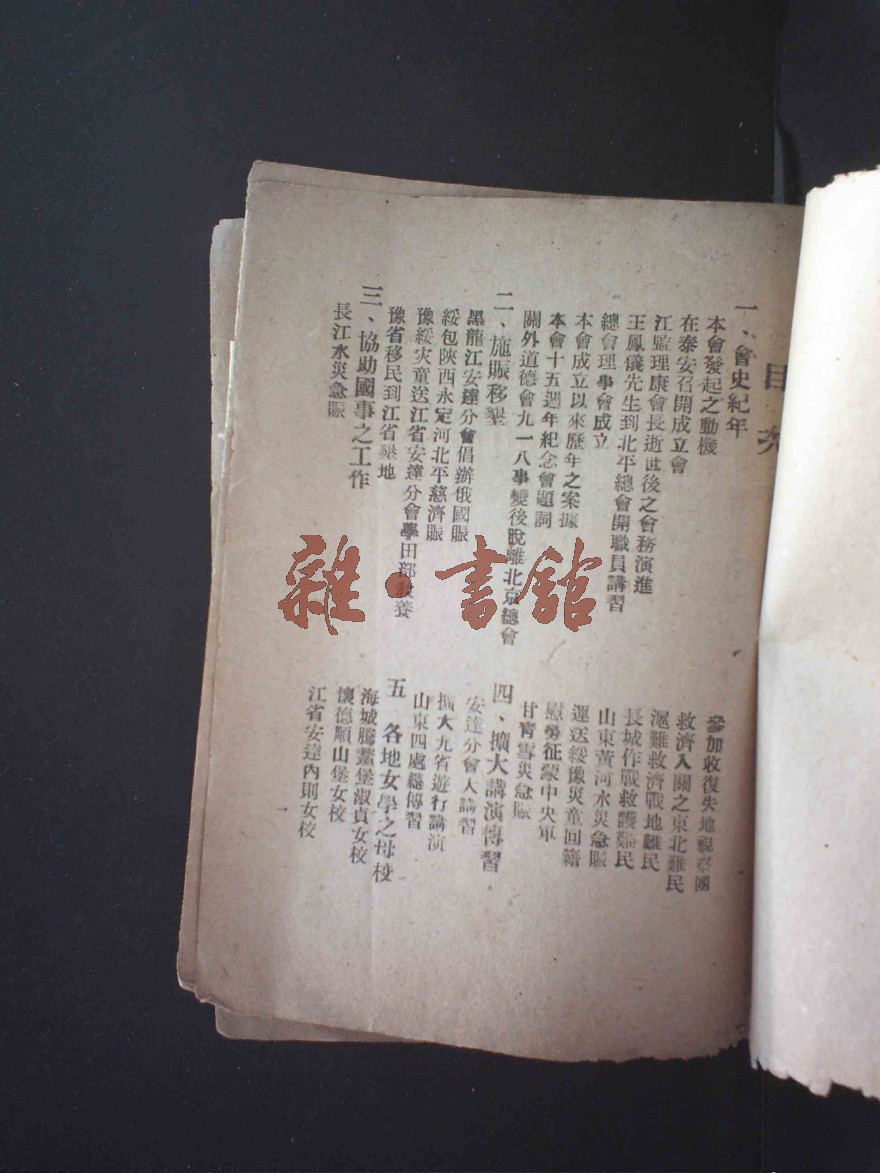 目次
一、會史紀年
本會發起之動機
在泰安召開成立會
江監理康會長逝世後之會務演進
王鳳儀先生到北平總會開職員講習
總會理事會成立
本會成立以來歷年之案據
本會十五週年紀念會題詞
關外道德會九一八事變後脫離北京總會
二、施賑移墾
黑龍江安達分會倡辦俄國賑
綏包陝西永定河北平慈濟賑
豫綏灾童送江省安達分會學田部養
豫省移民到江省墾地
三、協助國事之工作
長江水災急賑
參加收復失地視察團
救濟入關之東北難民
滬難救濟戰地難民
長城作戰救護難民
山東黃河水災急賑
運送綏豫災童回籍
慰勞征蒙中央軍
甘青雪災急賑
四、擴大講演傳習
安達分會大講習
擴大九省遊行講演
山東四處傳習
五 各地女學之母校
海城騰鰲堡淑貞女校
懷德順山堡女校
江省安達內則女校
雜·書館